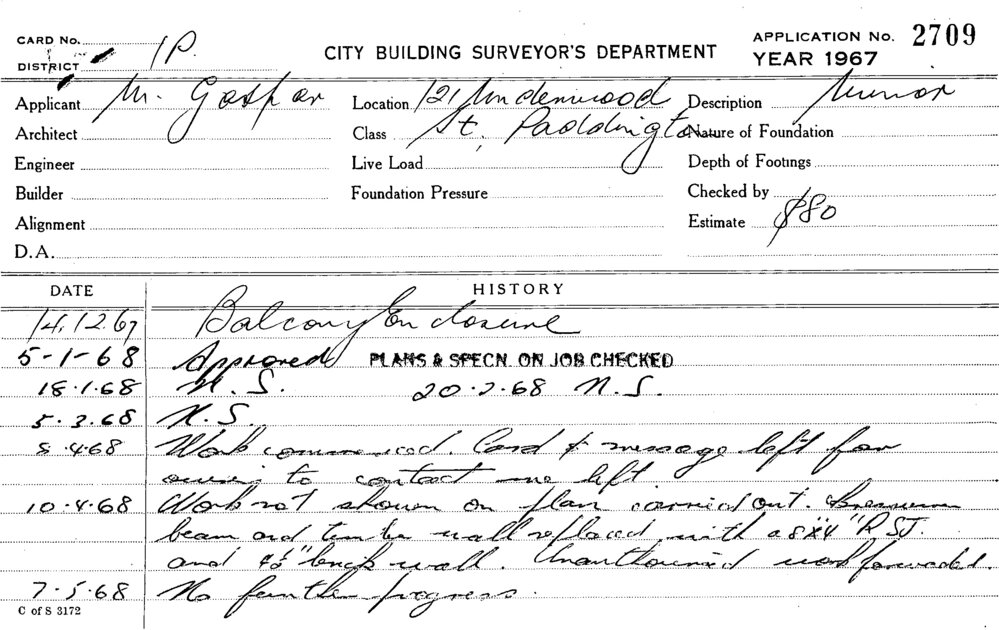 CARD No. 1P.
DISTRICT
CITY BUILDING SURVEYOR'S DEPARTMENT
APPLICATION No. 2709
YEAR 1967
Applicant M. Gaspar
Location 121 Underwood
Description Minor
Architect
Class St, Paddington
Nature of Foundation
Engineer
Live Load
Depth of Footings
Builder
Foundation Pressure
Checked by
Alignment
Estimate $80
D.A.
DATE
HISTORY
14.12.67 Balcony Enclosure
5-1-68 Approved PLANS & SPECN. ON JOB CHECKED
18.1.68 N.S. 20.2.68 N.S.
5.3.68 N.S.
8.4.68 Work commenced. Card & message left for
owner to contact me left.
10.4.68 Work not shown on plan carried out.
beam and timber wall replaced with a 8"x4" RSJ.
and 4½" brick wall. Unauthorised work forwarded.
7.5.68 No further progress.
C of S 3172